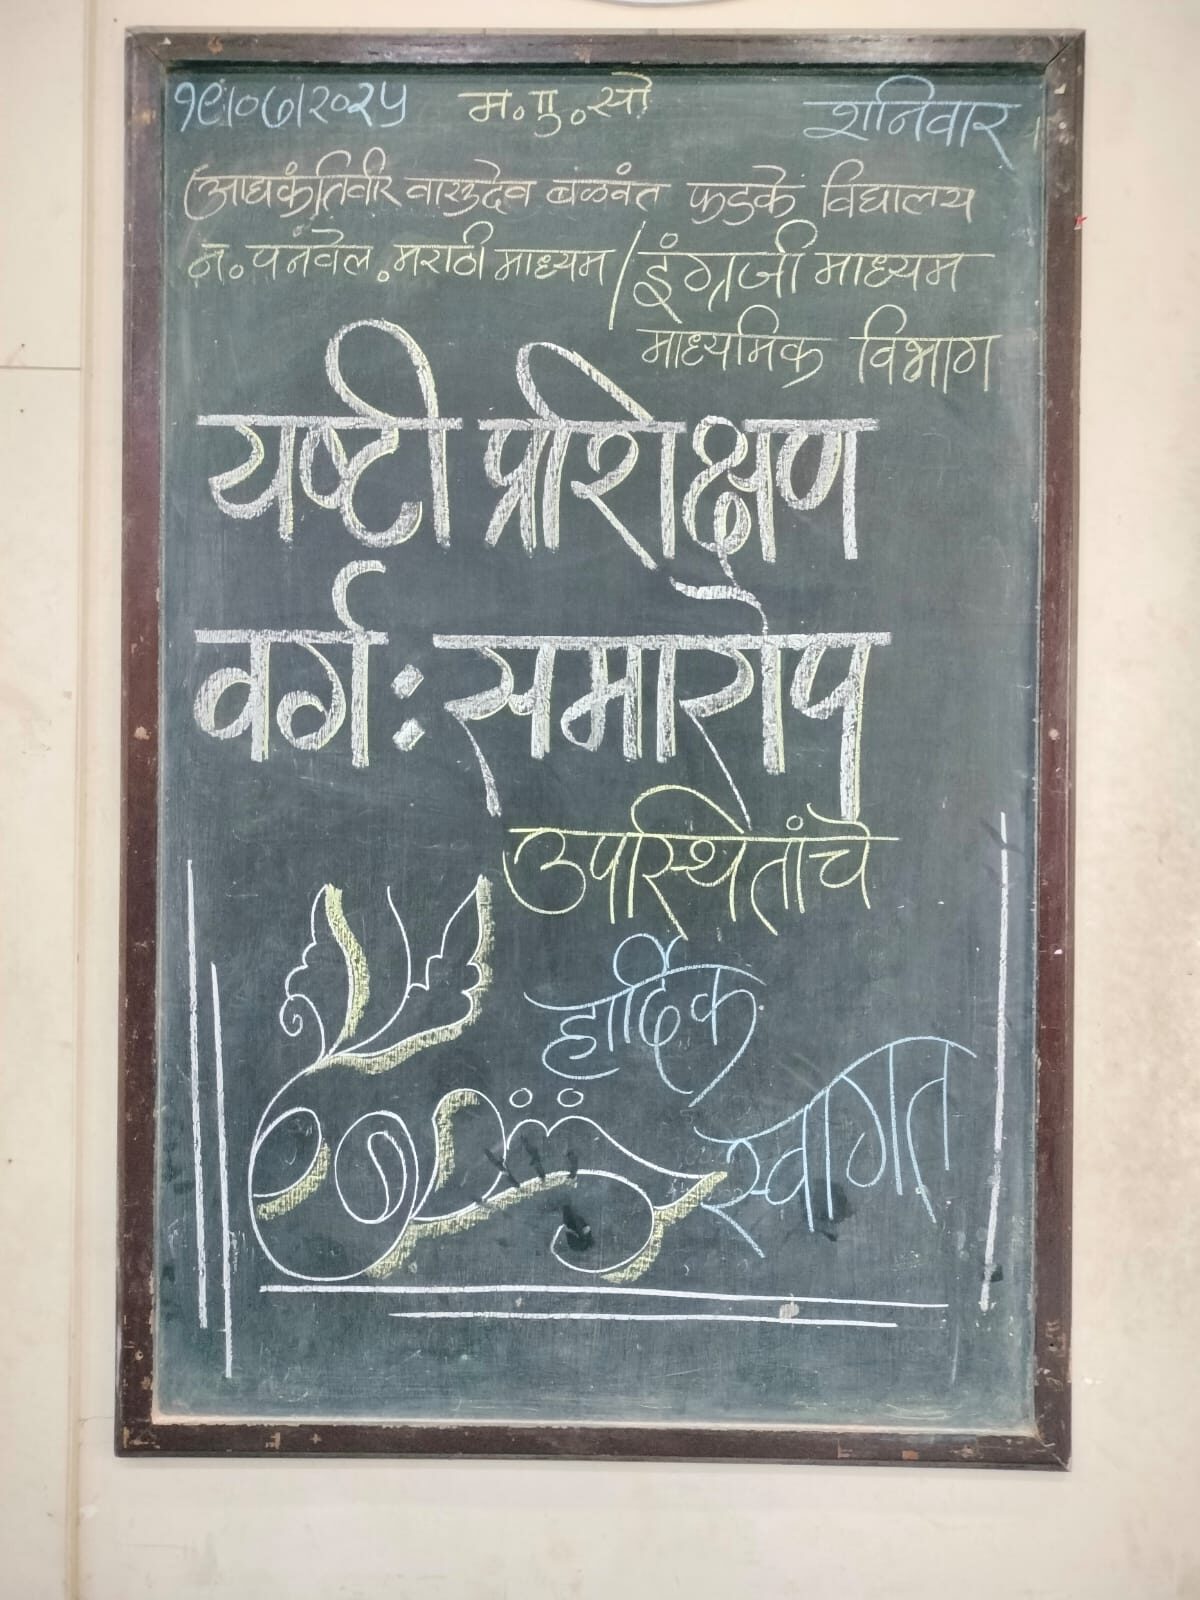 १९/०७/२०२५ म.ए.सो. शनिवार
(आद्यक्रंतिवीर वासुदेव बळवंत फडके विद्यालय
न. पनवेल. मराठी माध्यम / इंग्रजी माध्यम
माध्यमिक विभाग
यष्टी प्रशिक्षण
वर्ग: समारोप
उपस्थितांचे
हार्दिक
स्वागत